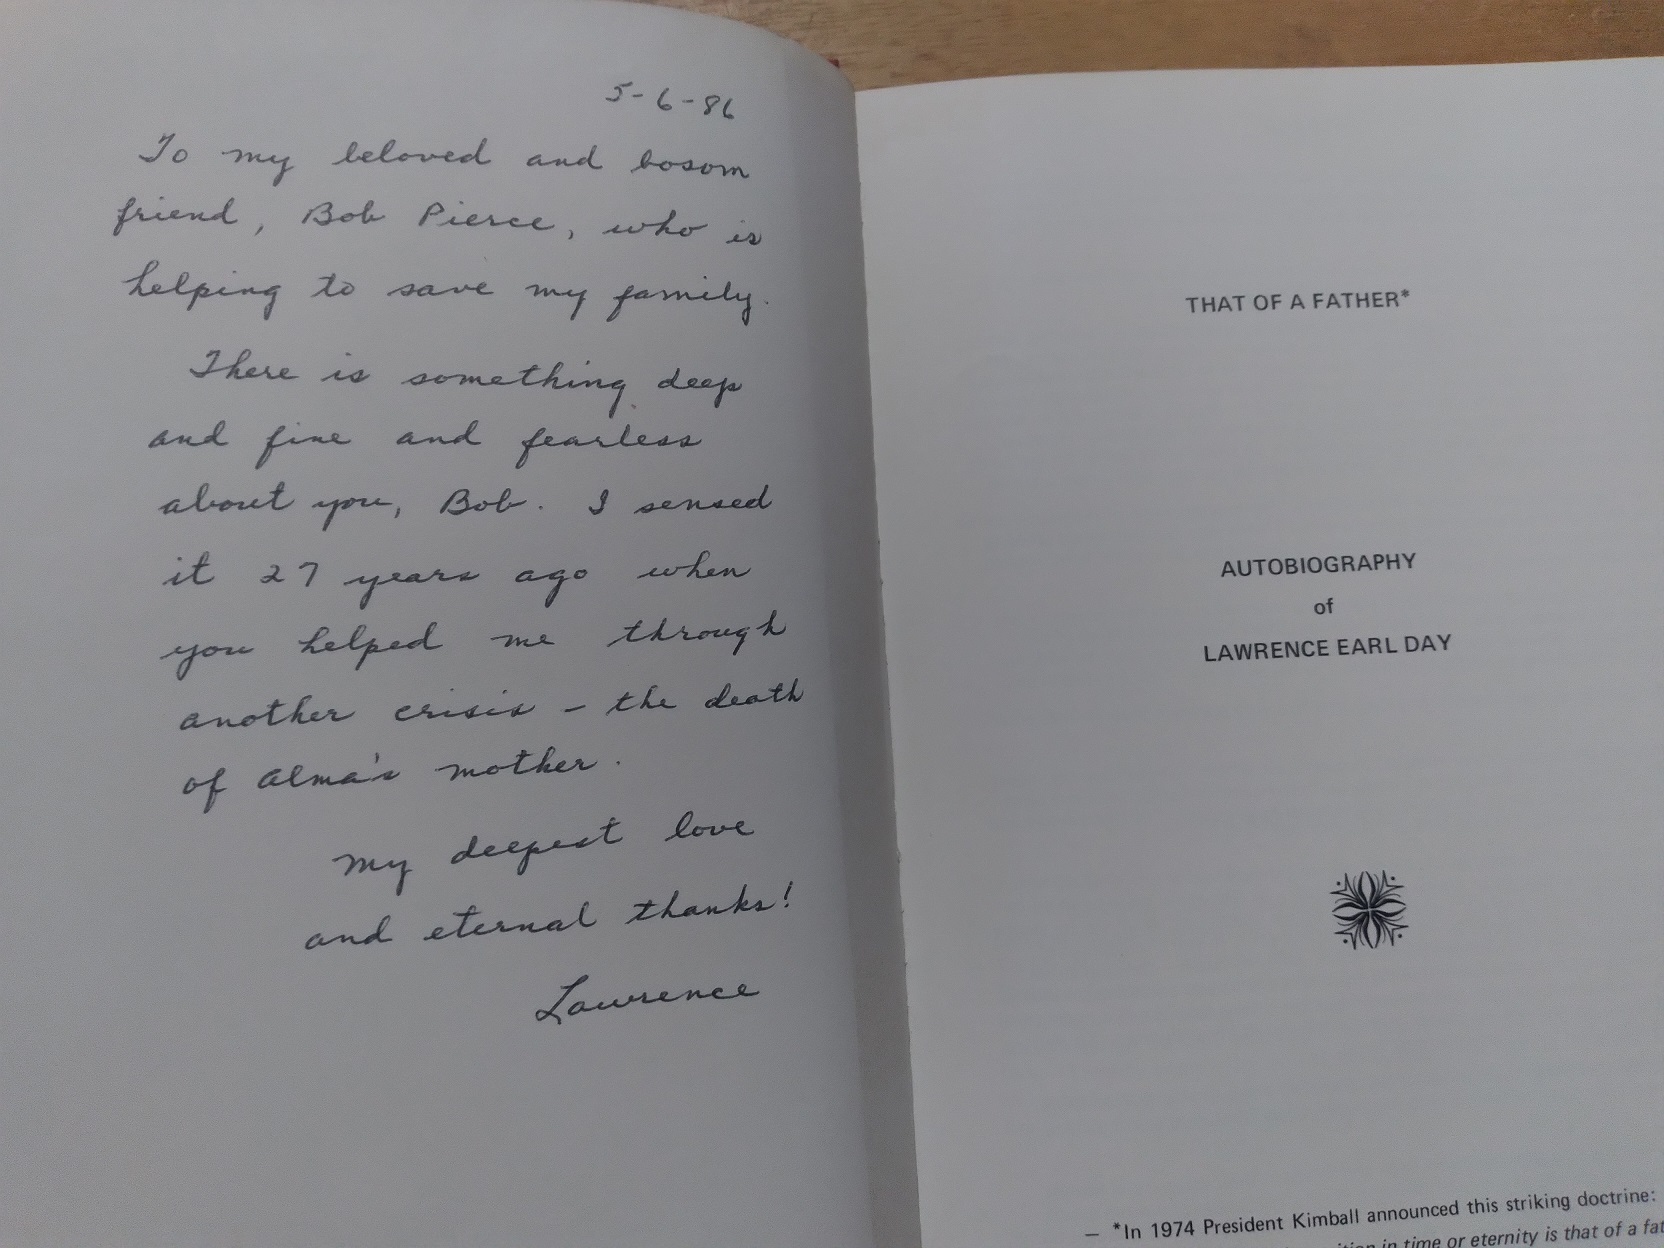 5-6-86
To my beloved and bosom
friend, Bob Pierce, who is
helping to save my family.
There is something deep
and fine and fearless
about you, Bob. I sensed
it 27 years ago when
you helped me through
another crisis – the death
of Alma's mother.
My deepest love
and eternal thanks!
Lawrence
THAT OF A FATHER*
AUTOBIOGRAPHY
of
LAWRENCE EARL DAY
– *In 1974 President Kimball announced this striking doctrine:
in time or eternity is that of a